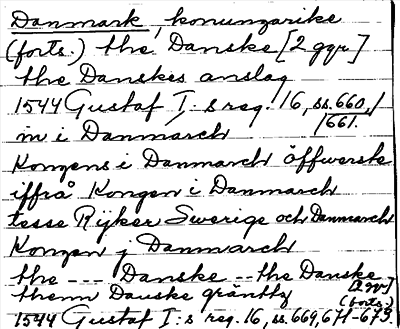 Danmark, konungarike
(forts.) the Danske [2 ggr]
the Danskes anslag
1544 Gustaf I:s reg. 16, ss. 660, /
/661.
in i Danmarch
Kongens i Danmarch öffwerste
iffrå Kongen i Danmarch
tesse Rijker Swerige och Danmarch
Kongen j Danmarch
the --- Danske -- the Danske
[2 ggr]
thenn Danske gräntzy
(forts.)
1544 Gustaf I:s reg. 16, ss. 669, 671-673.